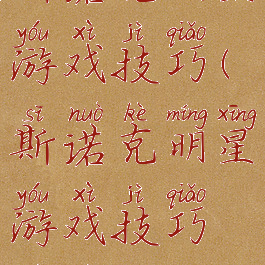 yóu xì jì qiǎo
游戏技巧(
sī nuò kè míng xīng
斯诺克明星
yóu xì jì qiǎo
游戏技巧